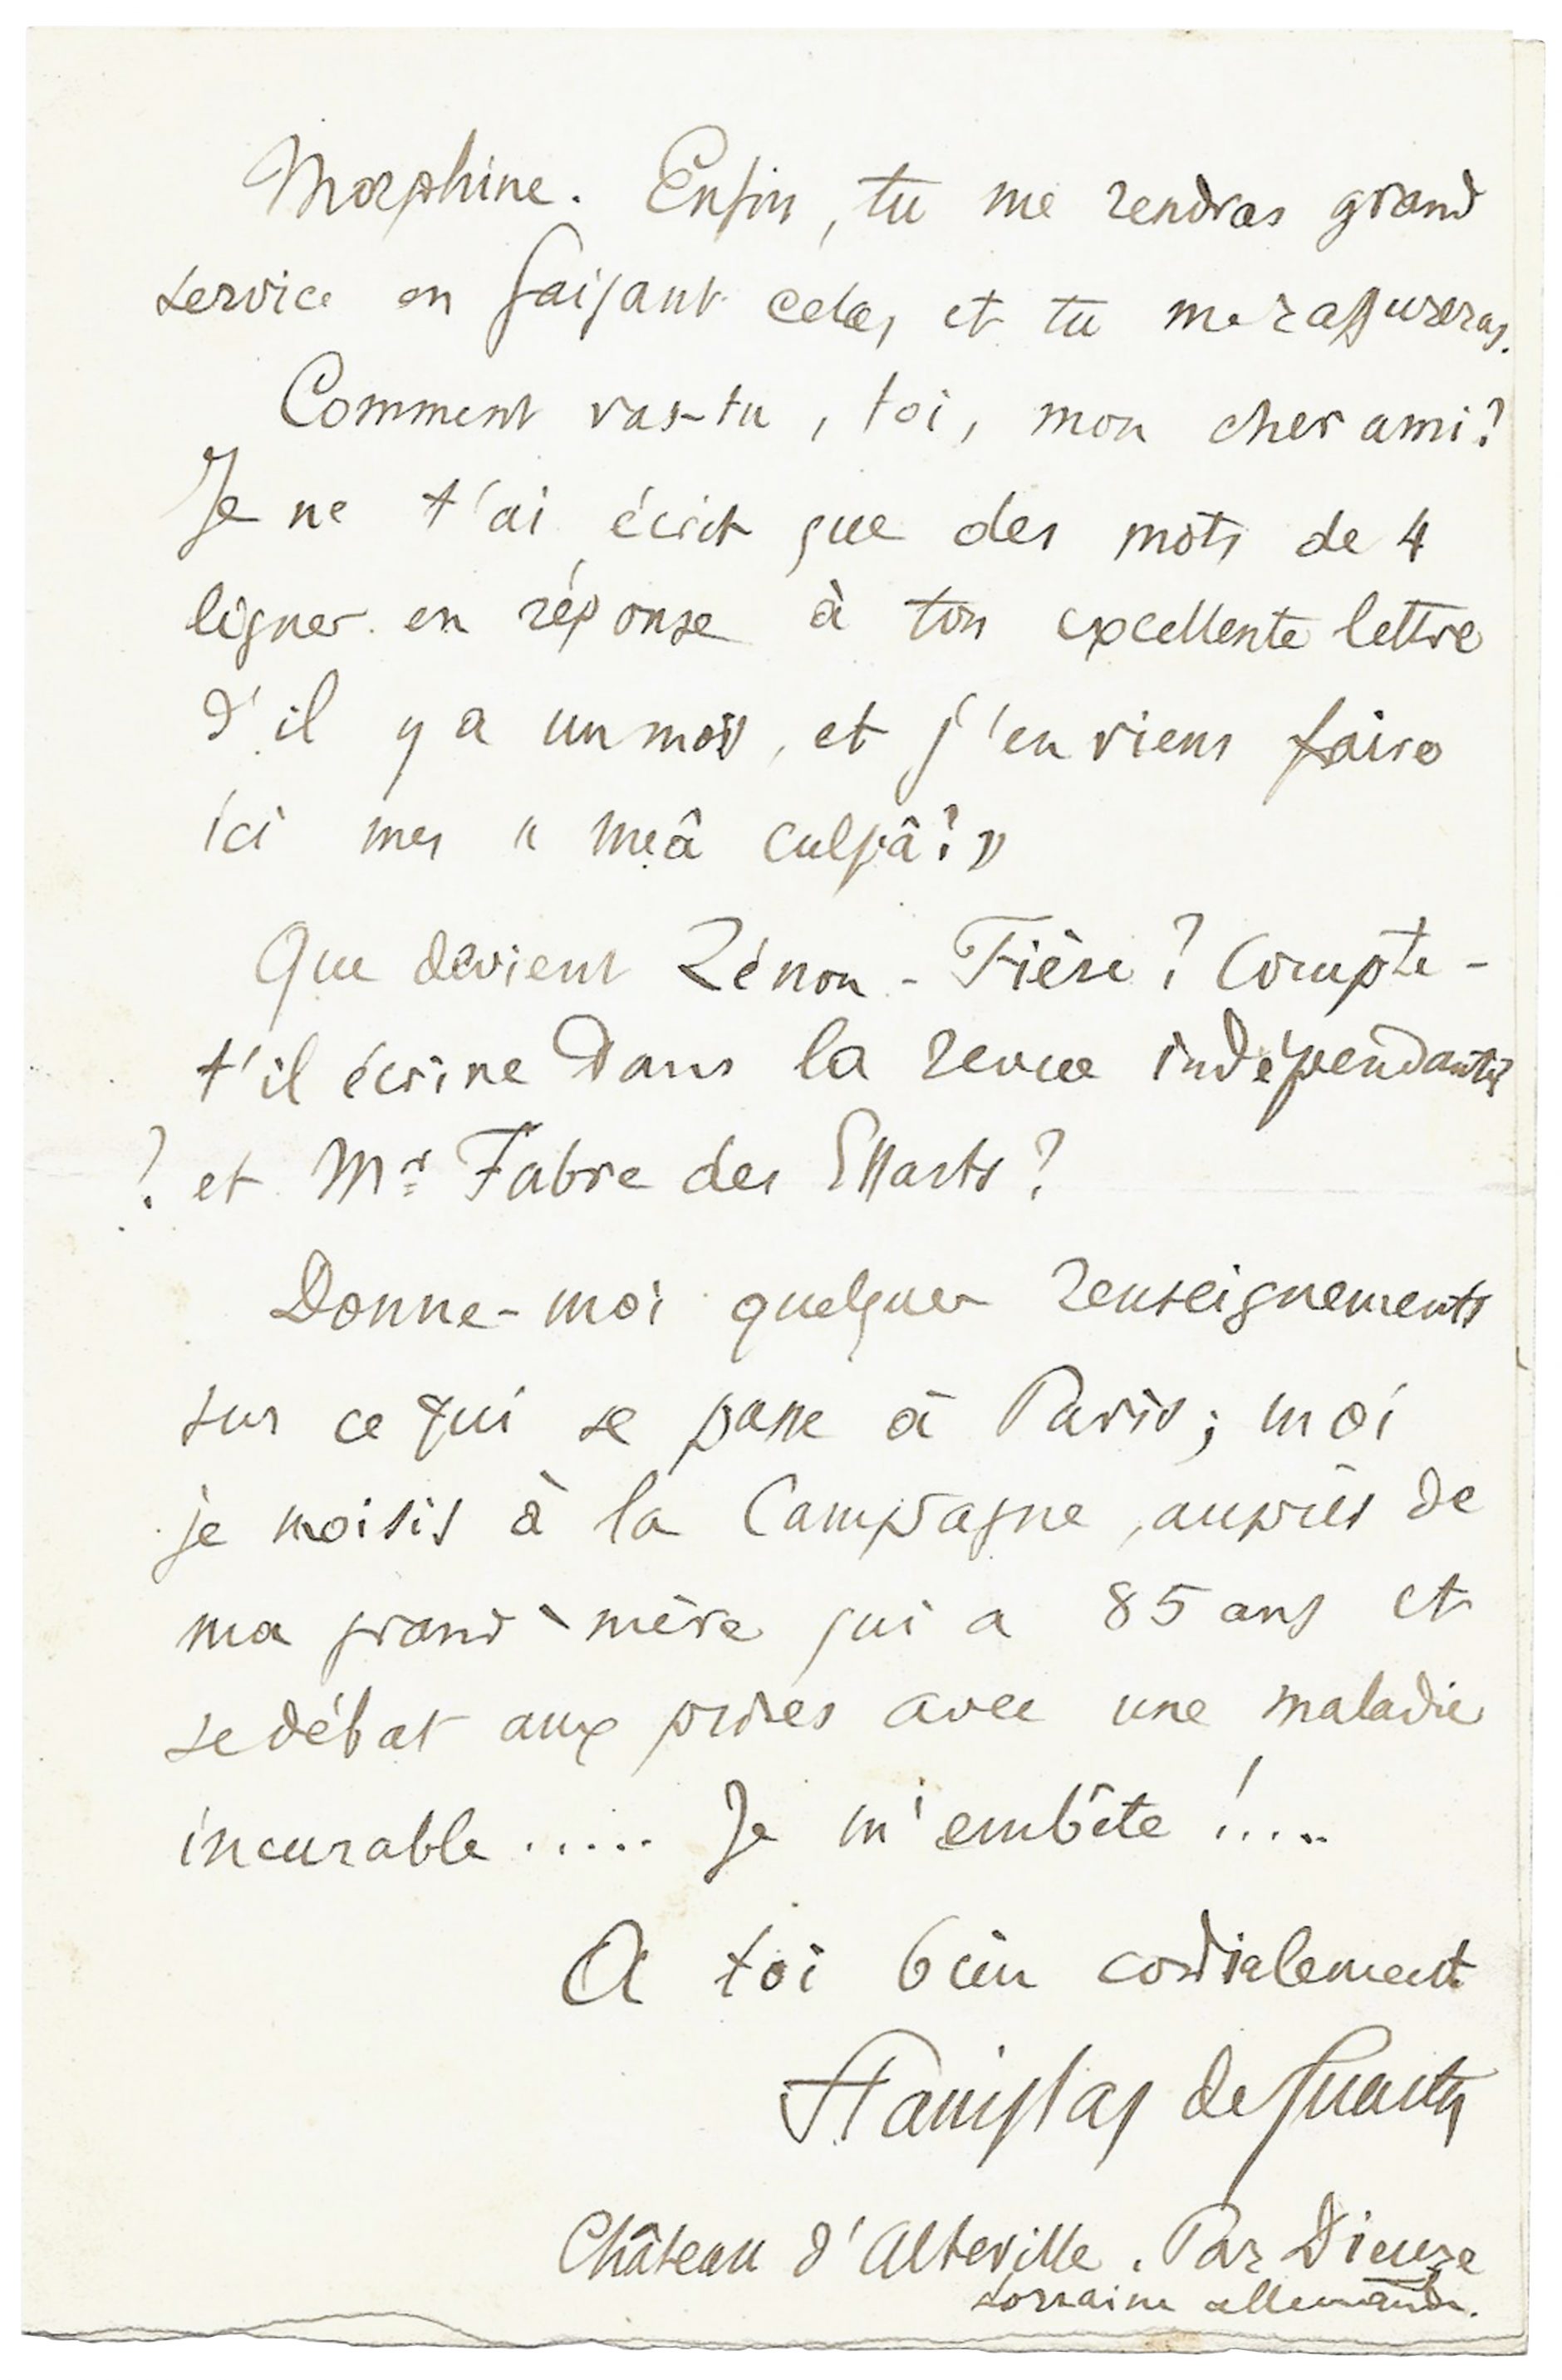 Morphine. Enfin, tu me rendras grand
service en faisant cela, et tu me rassureras.
Comment vas-tu, toi, mon cher ami?
Je ne t'ai écrit que des mots de 4
lignes en réponse à ton excellente lettre
d'il y a un mois, et j'en viens faire
ici mes « meâ culpâ! »
Que devient Zénon-Fière? Compte-
t'il écrire dans la revue indépendante
? et Mr Fabre des Essarts?
Donne-moi quelques renseignements
sur ce qui se passe à Paris; moi
je moisis à la Campagne, auprès de
ma grand-mère qui a 85 ans et
se débat aux prises avec une maladie
incurable..... Je m'embête!....
A toi bien cordialement
Stanislas de Guaita
Château d'Alteville. Par Dieuze
Lorraine allemande.